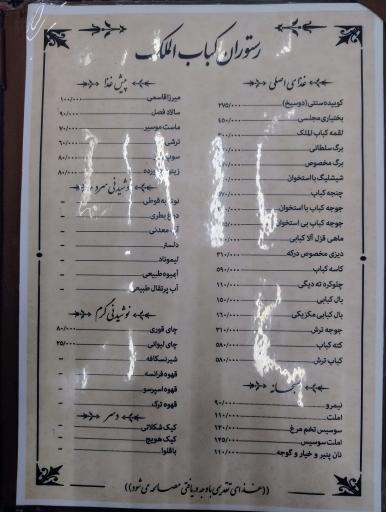 رستوران کباب الملک
غذای اصلی
کوبیده سنتی (دوسیخ) ۲۷۵/۰۰۰
بختیاری مجلسی ۴۵۰/۰۰۰
لقمه کباب الملک
برگ سلطانی
برگ مخصوص
شیشلیگ با استخوان
چنجه کباب
جوجه کباب با استخوان
جوجه کباب بی استخوان
ماهی قزل آلا کبابی
دیزی مخصوص درکه ۳۱۰/۰۰۰
کاسه کباب ۵۹۰/۰۰۰
چلوکره ته دیگی ۱۱۰/۰۰۰
بال کبابی ۱۵۰/۰۰۰
بال کبابی مکزیکی ۱۶۰/۰۰۰
جوجه ترش ۳۱۰/۰۰۰
کته کباب ۵۸۰/۰۰۰
کباب ترش ۵۸۰/۰۰۰
نیمرو ۹۰/۰۰۰
املت ۱۱۰/۰۰۰
سوسیس تخم مرغ ۱۲۰/۰۰۰
املت سوسیس ۱۴۵/۰۰۰
نان پنیر و خیار و گوجه ۱۱۰/۰۰۰
پیش غذا
میرزاقاسمی ۱۰۰/۰۰۰
سالاد فصل ۹۰/۰۰۰
ماست موسیر ۷۰/۰۰۰
ترشی ۶۰/۰۰۰
سوپ ۸۰/۰۰۰
زیتون ۸۰/۰۰۰
نوشیدنی سرد
نوشابه قوطی -
دوغ بطری -
آب معدنی -
دلستر -
لیموناد -
آبمیوه طبیعی -
آب پرتقال طبیعی -
نوشیدنی گرم
چای قوری ۸۰/۰۰۰
چای لیوانی ۲۵/۰۰۰
شیرنسکافه -
قهوه فرانسه -
قهوه اسپرسو -
قهوه ترک -
دسر
کیک شکلاتی -
کیک هویج -
باقلوا -
((غذای تقدیمی با وجه دریافتی مصالحه می شود))